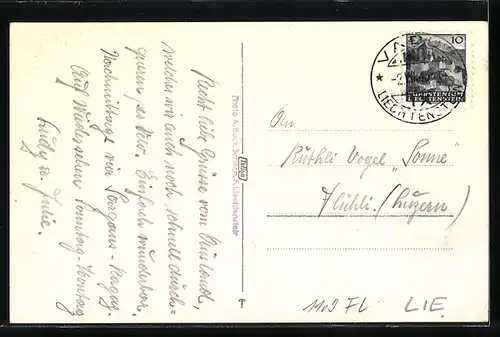 Recht liebe Grüsse vom Ausland,
welches wir auch noch schnell durch-
queren per Velo. Einfach wunderbar.
Nachmittags via Sargans - Ragaz
Auf Wiedersehen Sonntag
Trudy u. Julie.
Photo A. Buck, Schaan, Liechtenstein
VADUZ
LIECHTENSTEIN
10
FÜRSTENTUM
LIECHTENSTEIN
An
Ruthli Vogel „Sonne"
Flühli. (Luzern)
1109 FL LIE.